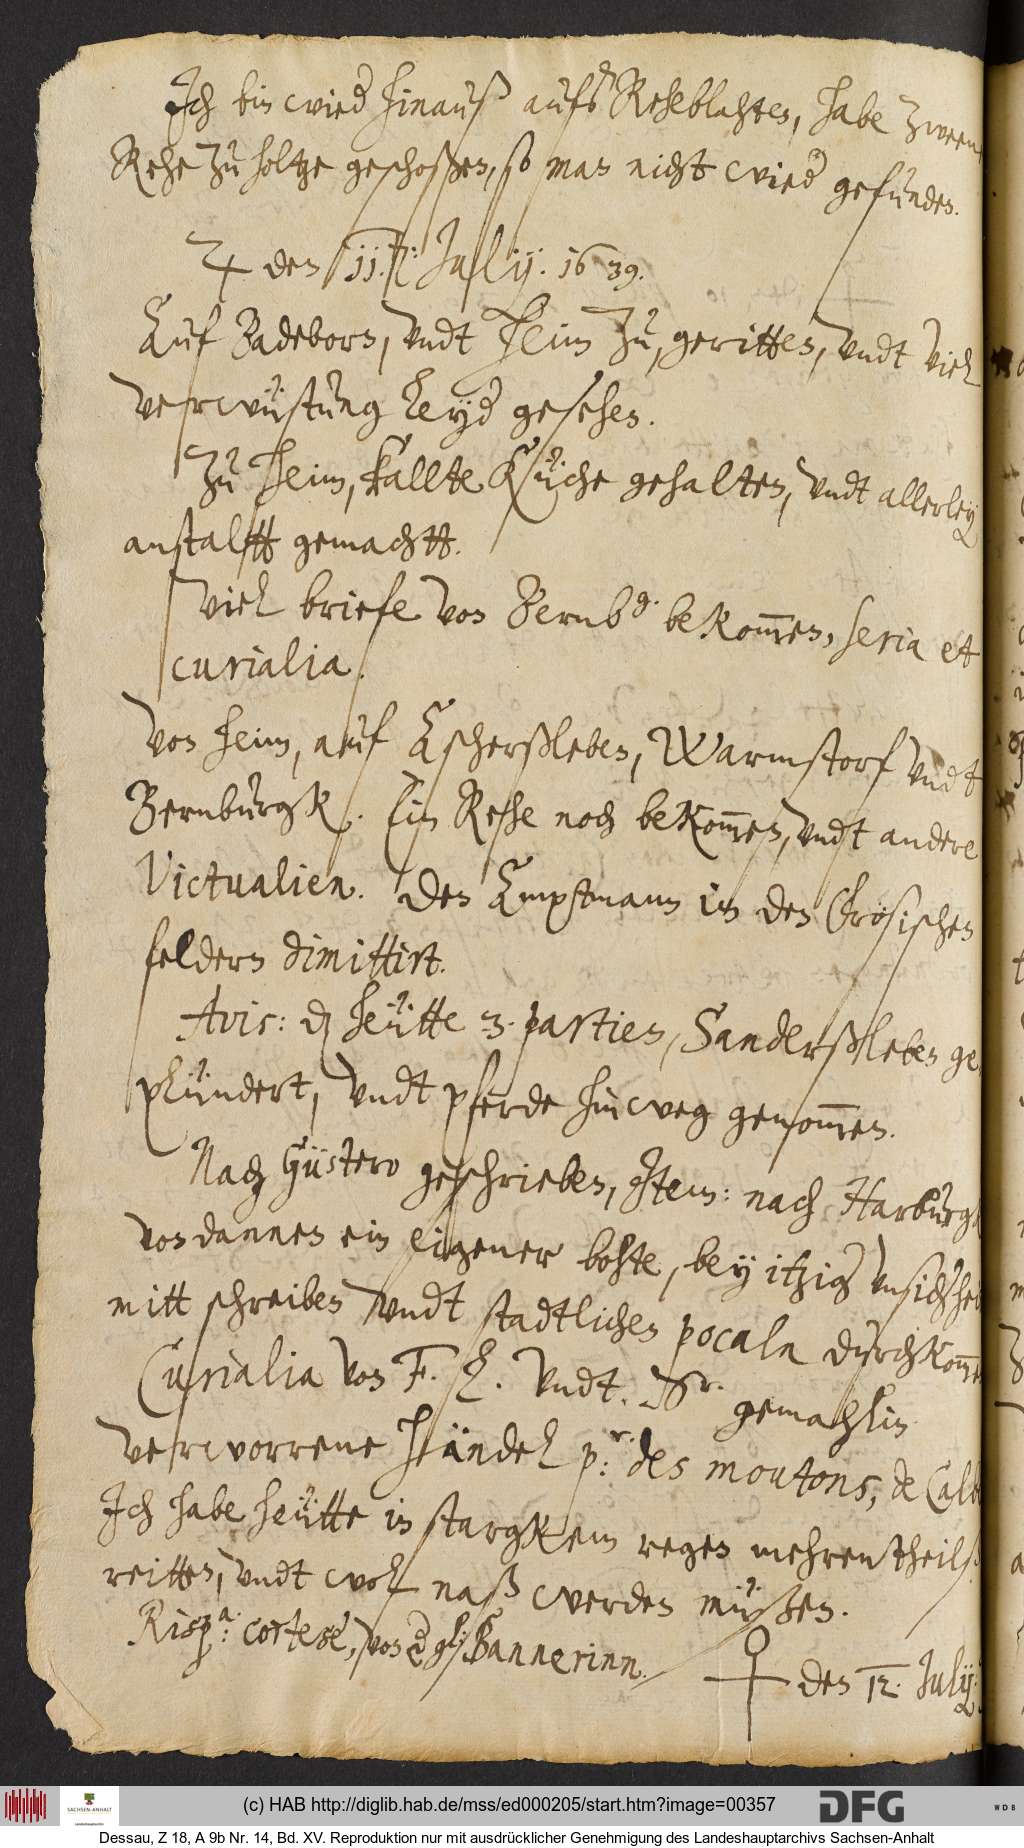 Ich bin wied hinauß aufs Reheblahten, habe zween
Rehe zu holtze geschoßen, so man nicht wied gefunden.
♃ den 11. Julij. 1639.
Auf Badeborn, vndt Heim zu, geritten, vndt viel
verwüstung leyd gesehen.
Zu Heim, kallte Küche gehalten, vndt allerley
anstaltt gemachtt.
Viel briefe von Bernbg. bekom̅en, seria et
curialia.
Von heim, auf Ascherßleben, Warmstorf vndt
Bernburgk. Ein Rehe noch bekom̅en, vndt andere
Victualien. Den Amptmann in den Grösischen
feldern dimittirt.
Avis: d heütte 3. partien, Sanderßleben ge
plündert, vndt pferde hinweg genom̅en.
Nach Güstero geschrieben, Item: nach Harburgk
von dannen ein eigener bohte, bey itzig vnsich
mitt schreiben vndt stadtlichen pocaln durchkom̅e
Curialia von F. L. vndt. Sr. gemahlin
verworrene Händel p: des moutons, de Calb
Ich habe heütte in stargkem regen mehrentheilß
reitten, vndt wol naß werden müßen.
Rispa: cortese, von Bannerinn.
♀ den 12. Julij.
(c) HAB http://diglib.hab.de/mss/ed000205/start.htm?image=00357
SACHSEN-ANHALT
DFG
WDB
Dessau, Z 18, A 9b Nr. 14, Bd. XV. Reproduktion nur mit ausdrücklicher Genehmigung des Landeshauptarchivs Sachsen-Anhalt